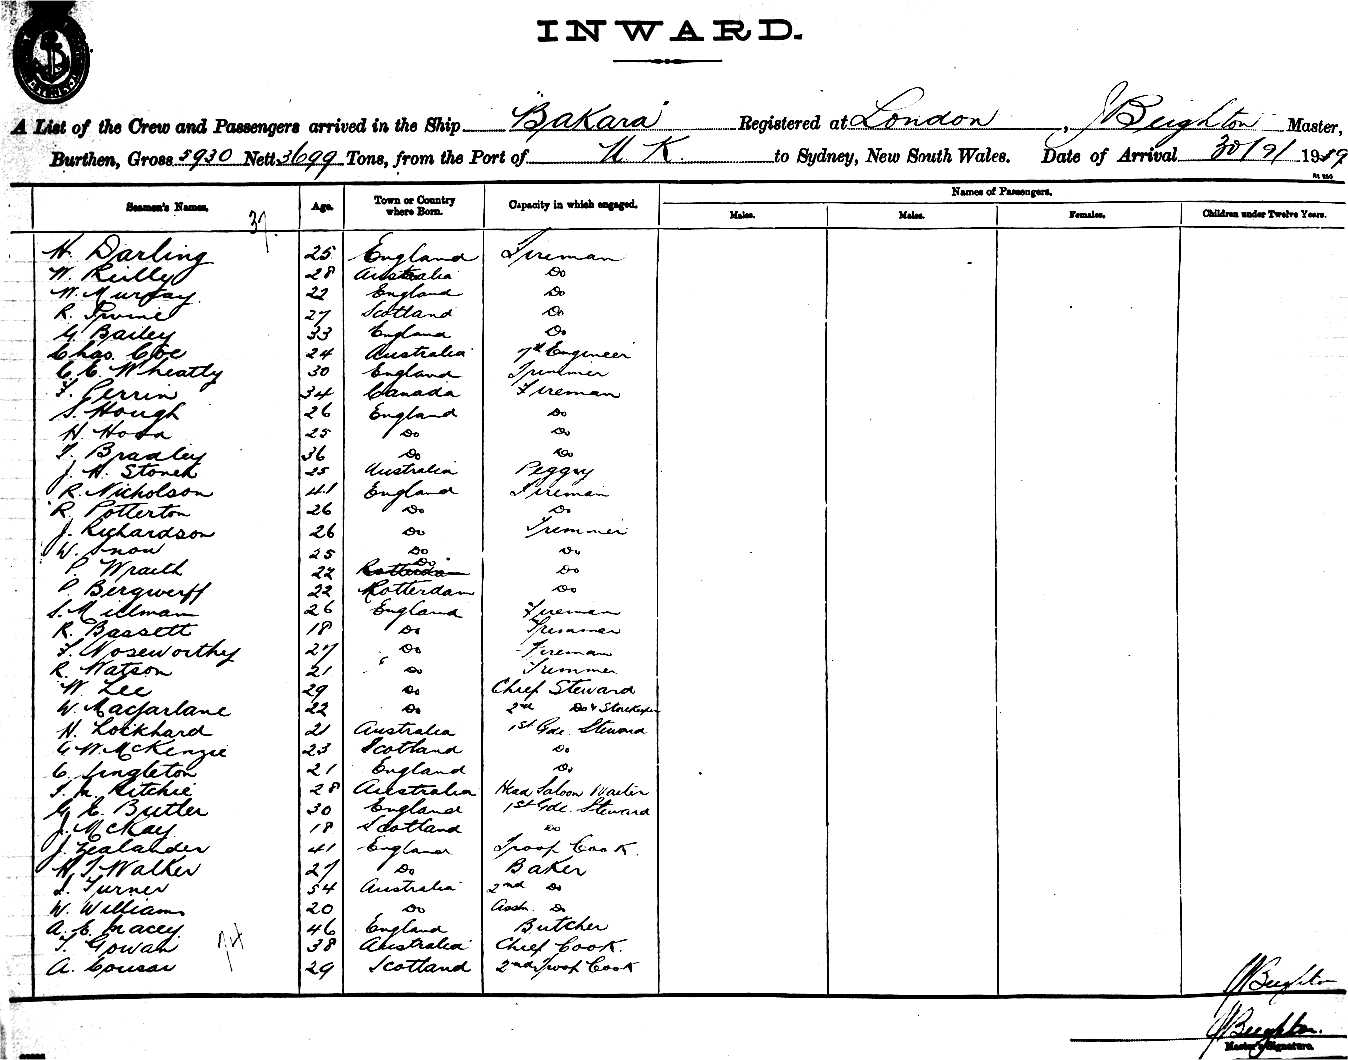 INWARD.
A List of the Crew and Passengers arrived in the Ship "Bakara" Registered at London, J Beighton Master,
Burthen, Gross 5930 Nett 3699 Tons, from the Port of U K. to Sydney, New South Wales. Date of Arrival 30/9/1919
Seamen's Names. Age. Town or Country where Born. Capacity in which engaged. Names of Passengers.
Males. Males. Females. Children under Twelve Years.
37.
H. Darling 25 England Fireman
W. Reilly 28 Australia Do
W. Murray 22 England Do
R. Irvine 27 Scotland Do
G. Bailey 33 England Do
Chas. Coe 24 Australia 7th Engineer
C. C. Wheatly 30 England Trimmer
F. Gerrin 34 Canada Fireman
S. Hough 26 England Do
H. Hood 25 Do Do
F. Bradley 36 Do Do
J. H. Stoneh 25 Australia Peggy
R. Nicholson 41 England Fireman
R. Potterton 26 Do Do
J. Richardson 26 Do Trimmer
W. Snow 25 Do Do
P. Wraith 22 Rotterdam Do Do
P. Bergwerff 22 Rotterdam Do
S. Millman 26 England Fireman
R. Bassett 18 Do Trimmer
F. Noseworthy 27 Do Fireman
R. Watson 21 Do Trimmer
W. Lee 29 Do Chief Steward
W. Macfarlane 22 Do 2nd Do & Storekeeper
H. Lockhard 21 Australia 1st Gde. Steward
G W. McKenzie 23 Scotland Do
C. Singleton 21 England Do
Ritchie 28 Australia Head Saloon Waiter
G. E. Butler 30 England 1st Gde. Steward
J. McKay 18 Scotland Do
J. Zealander 41 England Troop Cook.
H. T. Walker 27 Do Baker
Turner 54 Australia 2nd Do
W. Williams 20 Do Asst. Do
A. E. Tracey 46 England Butcher
T. Gowan 38 Australia Chief Cook.
A. Cousar 29 Scotland 2nd Troop Cook
J Beighton
J Beighton.
Master's Signature.